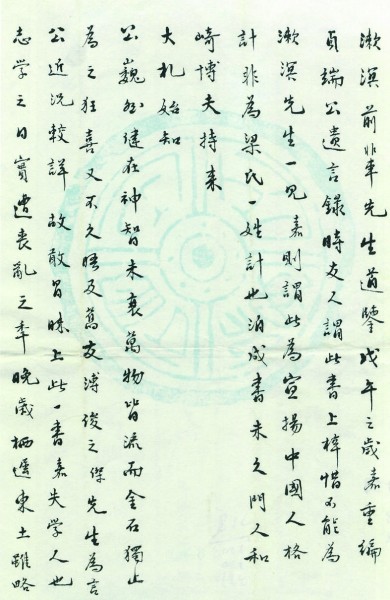 漱溟前輩先生道鑒戊午之歲嘉重編
貞端公遺言錄時友人謂此書上梓惜不能為
漱溟先生一見嘉則謂此為宣揚中國人格
計非為梁氏一姓計也洎成書未久門人和
崎博夫持来
大札始知
公巍然健在神智未衰萬物皆流而金石獨止
為之狂喜又不久晤及舊友溥俊之傑先生為言
公近況較詳故敢冒昧上此一書嘉失學人也
志学之日實遭喪亂之年晚歲栖遲東土雖略